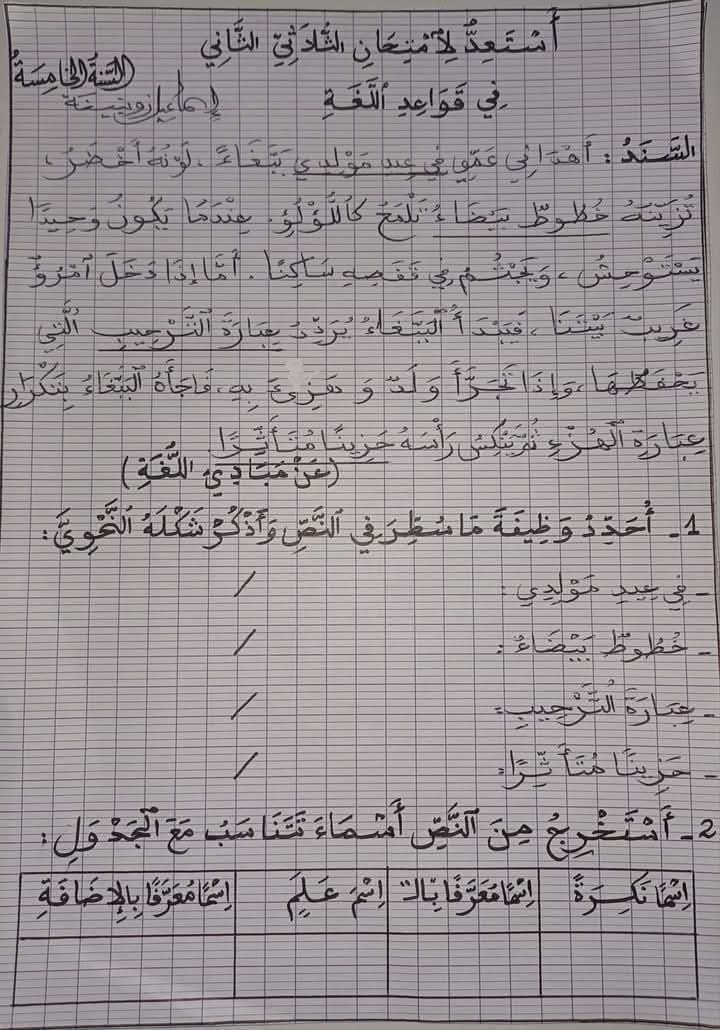 أَسْتَعِدُّ لِاُمْتِحَانِ الثُّلَاثِيِّ الثَّانِي
السَّنَةُ الخَامِسَةُ
فِي قَوَاعِدِ اللُّغَةِ
السَّنَدُ : أَهْدَانِي عَمِّي فِي عِيدِ مَوْلِدِي بَبَّغَاءً ، لَوْنُهُ أَخْضَرُ ،
تُزَيِّنُهُ خُطُوطٌ بَيْضَاءُ تَلْمَعُ كَاللُّؤْلُؤِ . عِنْدَمَا يَكُونُ وَحِيدًا
يَسْتَوْحِشُ ، وَيَجْثُمُ فِي قَفَصِهِ سَاكِنًا . أَمَّا إِذَا دَخَلَ امْرُؤٌ
غَرِيبٌ بَيْتَنَا ، فَيَبْدَأُ الْبَبَّغَاءُ يُرَدِّدُ عِبَارَةَ التَّرْحِيبِ الَّتِي
يَحْفَظُهَا ، وَإِذَا تَجَرَّأَ وَلَدٌ وَ هَزِئَ بِهِ ، فَاجَأَهُ الْبَبَّغَاءُ بِتَكْرَارِ
عِبَارَةِ الْهُزْءِ ثُمَّ يُنَكِّسُ رَأْسَهُ حَزِينًا مُتَأَثِّرًا
(عَنْ مَبَادِئِ اللُّغَةِ)
1 - أُحَدِّدُ وَظِيفَةَ مَا سُطِّرَ فِي النَّصِّ وَأَذْكُرُ شَكْلَهُ النَّحْوِيَّ :
- فِي عِيدِ مَوْلِدِي : /
- خُطُوطٌ بَيْضَاءُ : /
- عِبَارَةَ التَّرْحِيبِ : /
- حَزِينًا مُتَأَثِّرًا : /
2 - أَسْتَخْرِجُ مِنَ النَّصِّ أَسْمَاءَ تَتَنَاسَبُ مَعَ الْجَدْوَلِ :
اِسْمًا نَكِرَةً اِسْمًا مُعَرَّفًا بِالـ اِسْمَ عَلَمٍ اِسْمًا مُعَرَّفًا بِالإِضَافَةِ